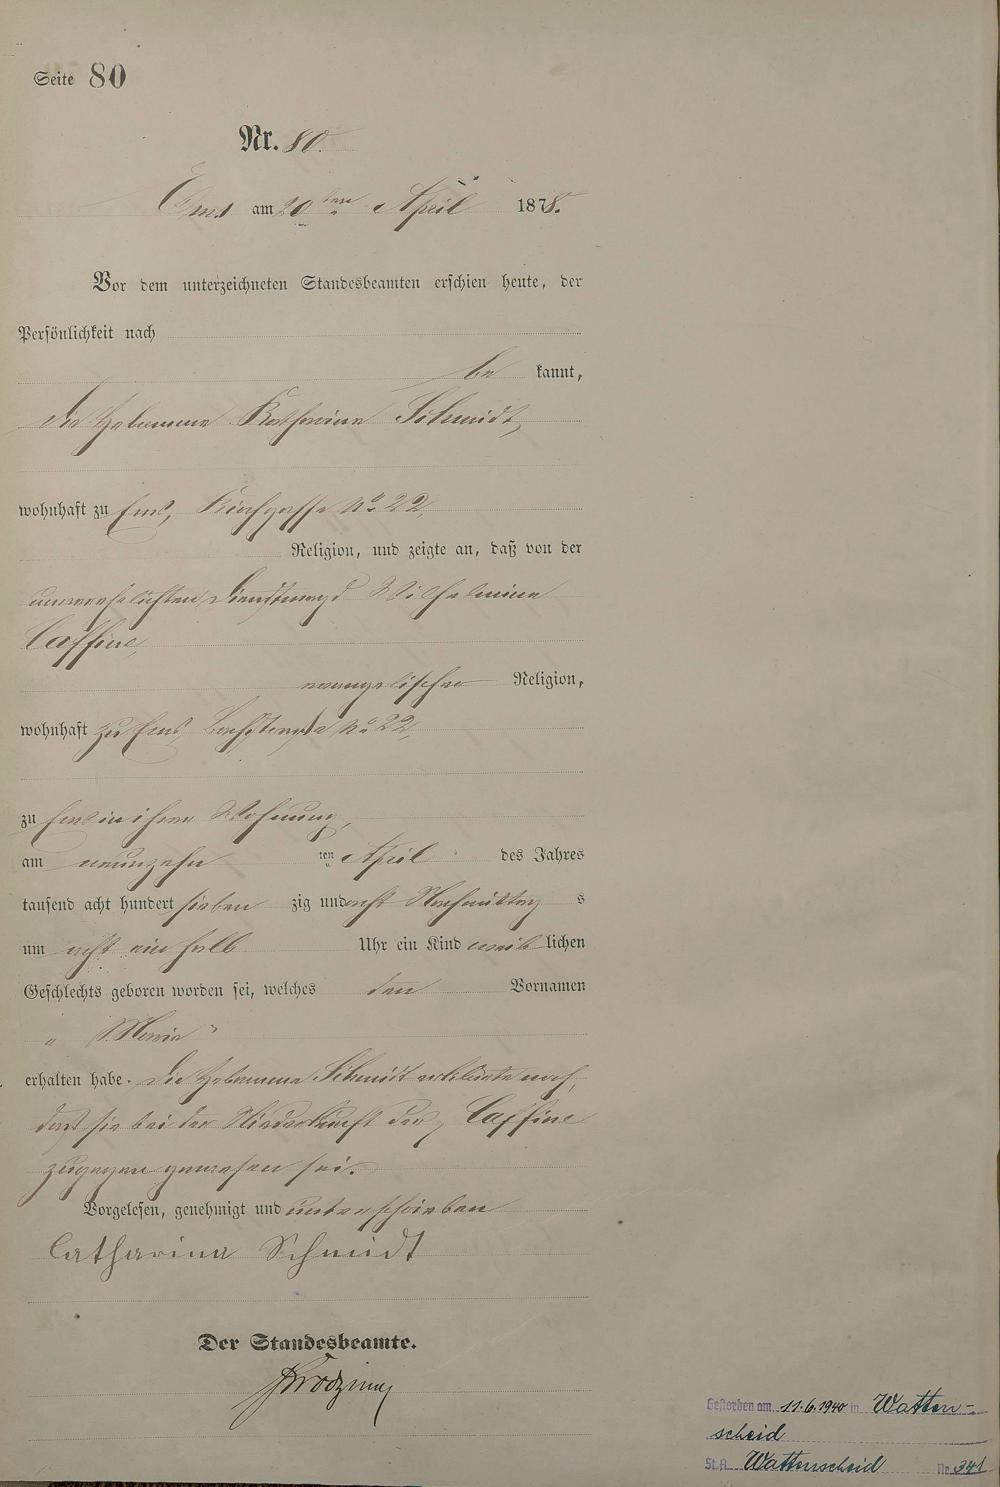 Seite 80
Nr. 80.
Ems am 20ten April 1878.
Vor dem unterzeichneten Standesbeamten erschien heute, der
Persönlichkeit nach
be kannt,
die Hebamme Katharina Schmidt,
wohnhaft zu Ems, Kirchgasse No 22,
Religion, und zeigte an, daß von der
unverehelichten Dienstmagd Wilhelmine
Caffine,
evangelischer Religion,
wohnhaft zu Ems, No 22,
zu Ems in ihrer Wohnung,
am neunzehn ten April des Jahres
tausend acht hundert sieben zig und acht Nachmittag s
um acht ein halb Uhr ein Kind weib lichen
Geschlechts geboren worden sei, welches den Vornamen
" Maria "
erhalten habe. Die Hebamme Schmidt erklärte noch,
daß sie bei der Niederkunft der Caffine
zugegen gewesen sei.
Vorgelesen, genehmigt und unterschrieben
Catharina Schmidt
Der Standesbeamte.
Gestorben am 11.6.1940 in Watten-
scheid
St.A. Wattenscheid Nr. 341